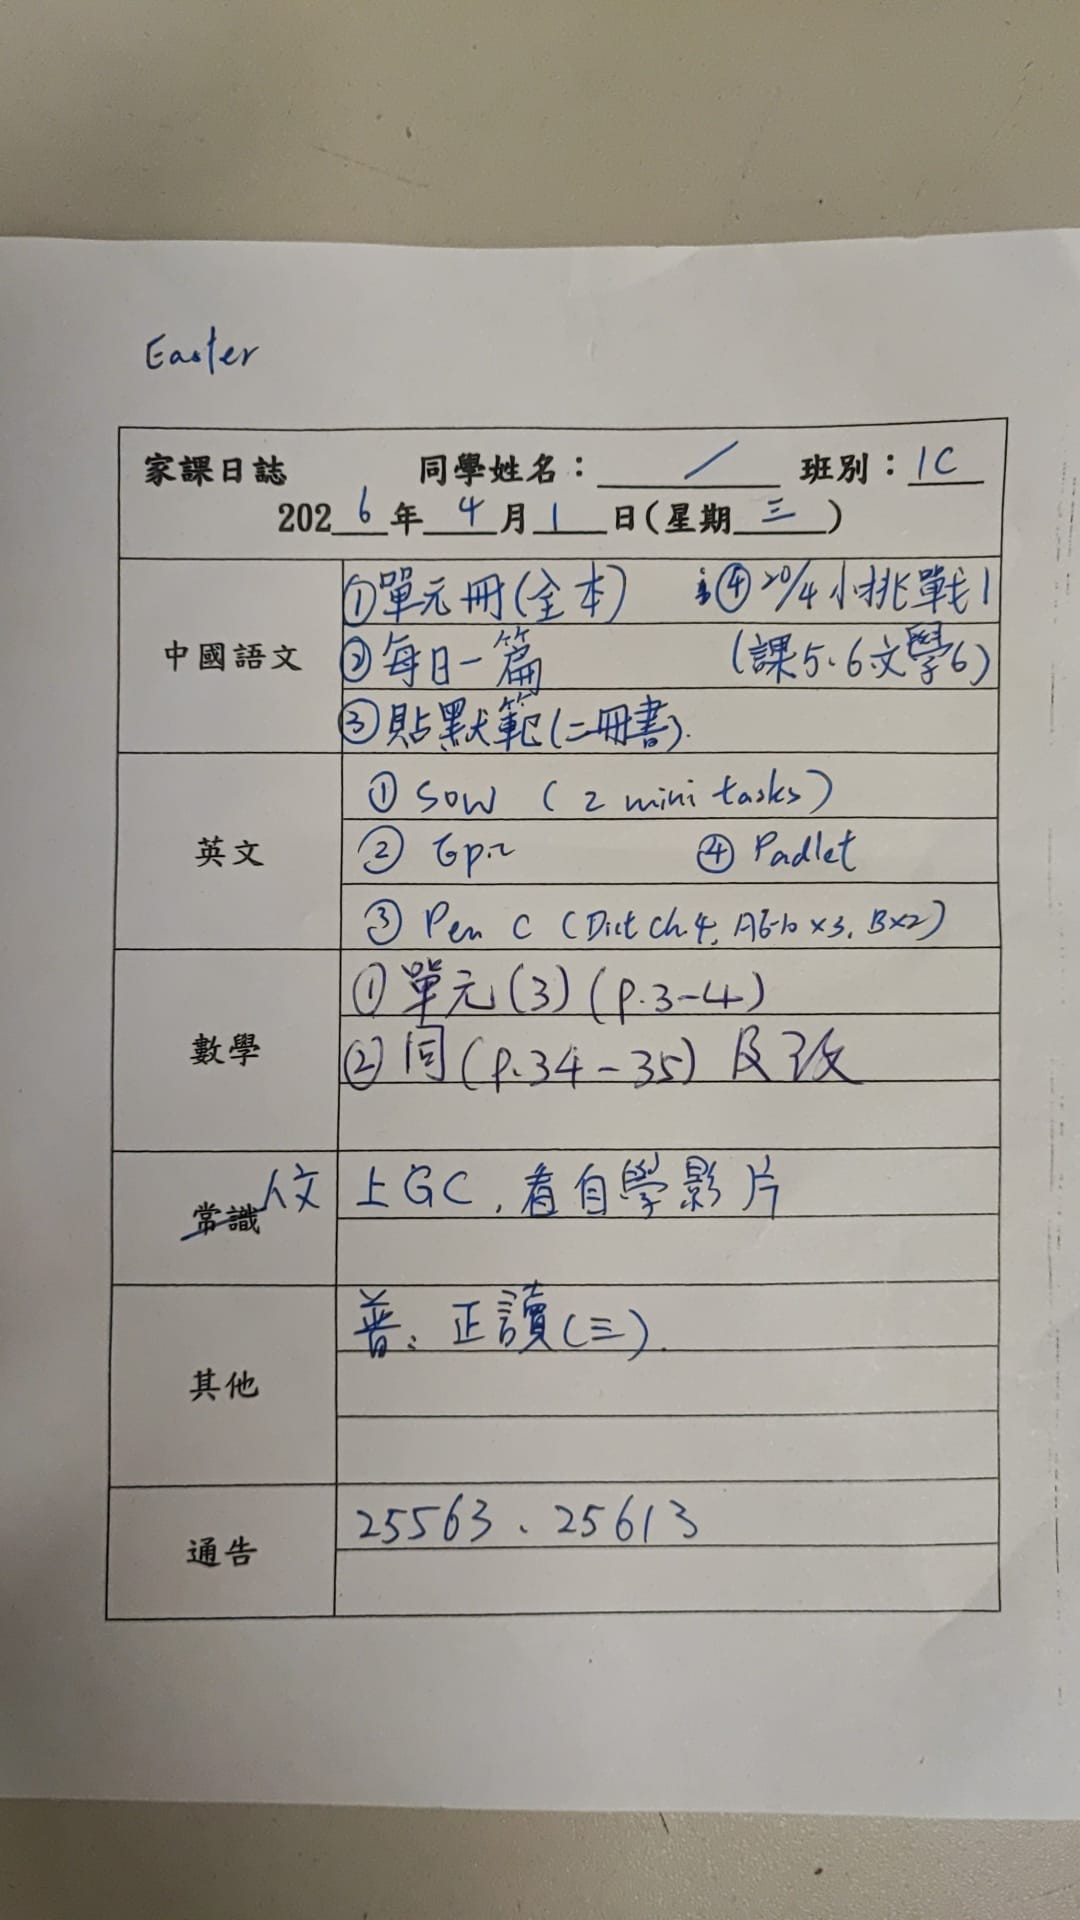 Easter
家課日誌 同學姓名：／ 班別：1C
2026年4月1日(星期三)
中國語文
①單元冊(全本) ④20/4小挑戰1
②每日一篇 (課5、6文學6)
③貼默範(二冊書).
英文
① SOW (2 mini tasks)
② ④ Padlet
③ Pen C (Dict ch.4, A6-10 x3, Bx2)
數學
①單元(3)(P.3-4)
②同(P.34-35)及改
常識 人文
上GC,看自學影片
其他
普：正讀(三).
通告
25563、25613